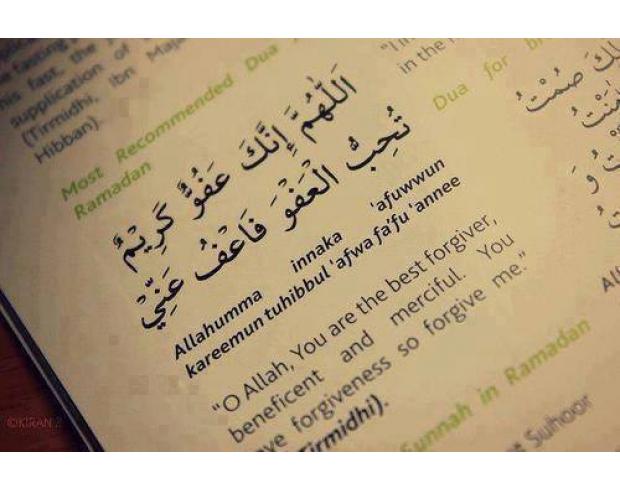 fasting
his fast, the
supplication of
(Tirmidhi, Ibn Maja
Hibban).
Most Recommended Dua
Ramadan
اَللّٰهُمَّ إِنَّكَ عَفُوٌّ كَرِيْمٌ
تُحِبُّ الْعَفْوَ فَاعْفُ عَنِّيْ
Allahumma innaka 'afuwwun
kareemun tuhibbul 'afwa fa'fu 'annee
"O Allah, You are the best forgiver,
beneficent and merciful. You
ve forgiveness so forgive me."
Tirmidhi).
Sunnah in Ramadan
Suhoor
in the
Dua for
صُمْتُ
©KIRAN